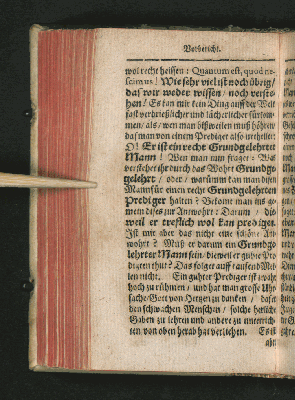 Vorbericht.
wol recht heissen: Quantum est, quod ne-
scimus! Wie sehr viel ist noch übrig/
das wir weder wissen / noch verste-
hen! Es kan mir kein Ding auff der Welt
fast verdrießlicher und lächerlicher fürkom-
men/ als/ wen man bißweilen muß hören/
daß man von einem Prediger also urtheilet:
O! Er ist ein recht Grundgelehrter
Mann! Wen man nun fraget: Was
verstehet ihr durch das Wohrt Grundge-
gelehrt / oder / warümb kan man diesen
Mann für einen recht Grundgelehrten
Prediger halten? Bekomt man ins ge-
mein dieses zur Antwohrt: Darum / die-
weil er treflich wol kan predigen.
Ist mir aber das nicht eine schöne Ant-
wohrt? Muß er darum ein Grundge-
lehrter Mann sein/ dieweil er guhte Pre-
digten thut? Das folget auff tausend Mei-
len nicht. Ein guhter Prediger ist zwahr
hoch zu rühmen / und hat man grosse Uhr-
sache Gott von Hertzen zu danken / daß er
den schwachen Menschen / solche herliche
Gaben zu lehren und andere zu unterrich-
ten von oben herab hat verliehen. Es ist